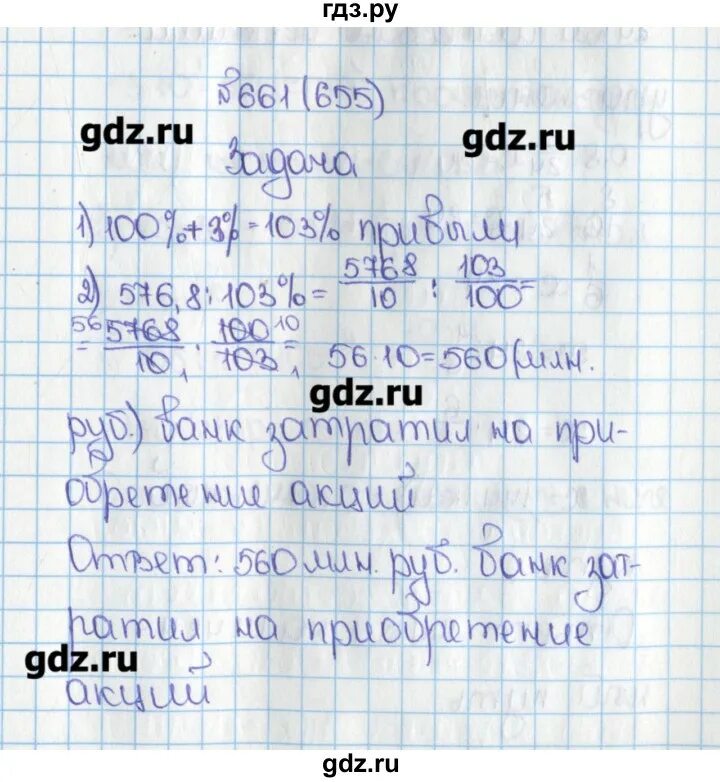 гдз.ру
№661 (655)
gdz.ru
gdz.ru
Задача
1) 100% + 3% = 103% прибыли
2) 576,8 : 103% = 5768/10 : 103/100 =
= 5768/10 · 100/103 = 56·10=560 (млн.
56 1 10 1
gdz.ru
руб.) банк затратил на при-
обретение акций
Ответ: 560 млн. руб. банк зат-
ратил на приобретение
gdz.ru
акций
gdz.ru